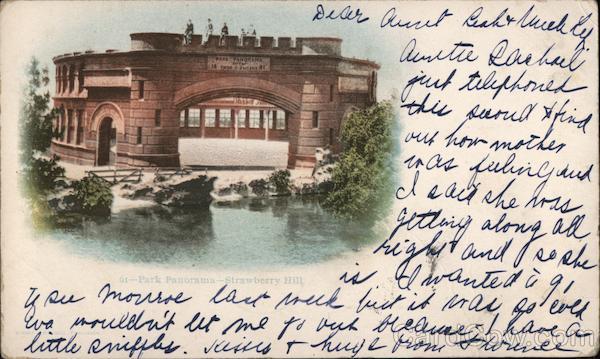 Dear Aunt Leah & Uncle Ly
Auntie Rachael
just telephoned
this second & find
out how mother
was feeling and
I said she was
getting along all
right and so she
is I wanted to go
To see Monroe last week but it was so cold
Eva wouldn't let me go out because I have a
little sniffle. Kisses & hugs from
PARK PANORAMA
61—Park Panorama—Strawberry Hill
CardCow.com